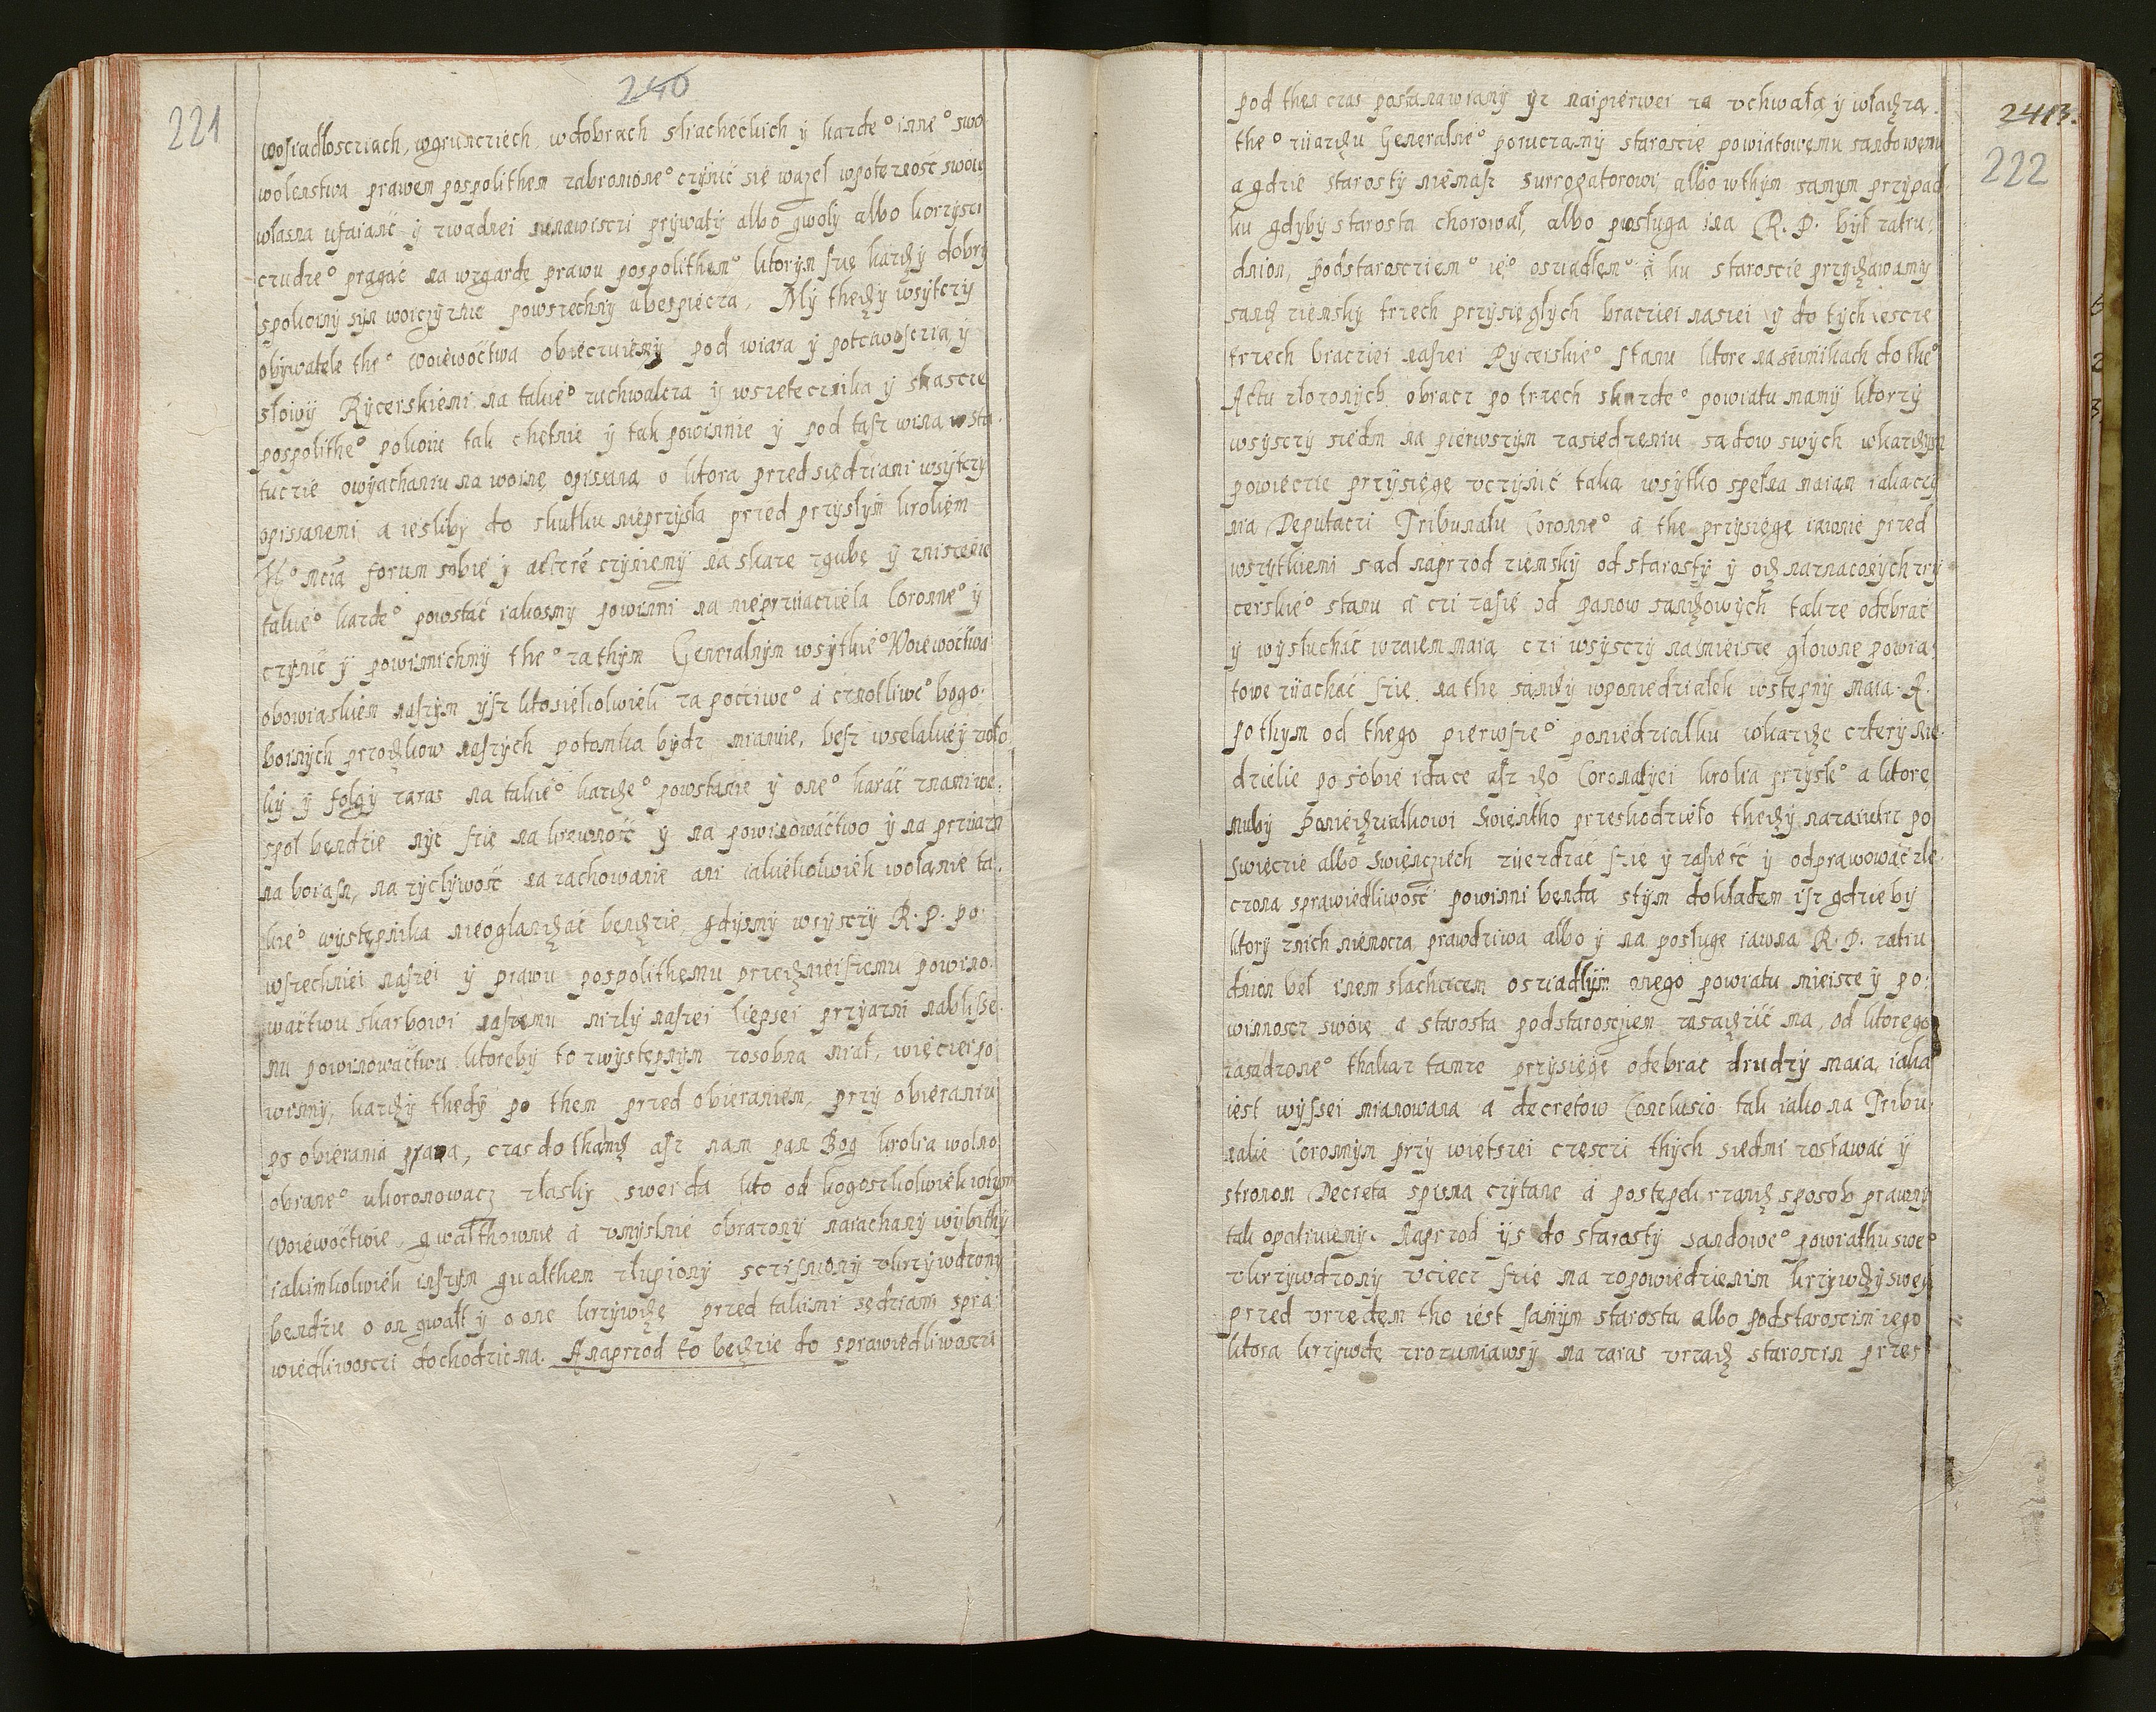 240
221
wosiadłoscziach, wgrunciech, wdobrach sliacheckich ÿ kazde° inne° swo
wolenstwa prawem pospolithem zabronione° czÿnić się wazel wpotęznosć swoię
własna ufaiąnć ÿ zwadnei nienawisczi prÿwatÿ albo gwolÿ albo korzÿsci
cudze° pragąć na wzgarde prawu pospolithem° ktorÿm szię kazdÿ dobrÿ
spokoinÿ sÿn woiczÿznie powszechnÿ ubespiecza, Mÿ thedÿ wsÿtczÿ
obÿwatele the° woiewoctwa obiecuiemÿ pod wiara ÿ potcziwosczia ÿ
słowÿ Rÿcerskiemi na takie° zuchwalcza ÿ wszetecznika ÿ skascze
pospolithe° pokoiu tak chętnie ÿ tak powinnie ÿ pod tasz wina wsta.
tuczie owÿachaniu na woinę opissaną o ktora przed siędziami wsÿtczÿ
opissanemi a iesliby do skutku nieprzÿsła przed przÿsłÿm krolięm
forum sobie ÿ actorę czÿniemÿ na skare zgubę ÿ zniscięie
takie° kazde° powstać iakosmÿ powinni na nieprzÿiaciela Coronne° ÿ
czÿnić ÿ powinnichmÿ the° zathÿm Generalnÿm wsÿtkie° Woiewoctwa
obowiąskiem naszÿm ÿsz ktosiekolwiek za pocciwe° a cznotliwe° bogo.
boinÿch przodkow naszÿch potomka bÿdz mianuie, besz wselakiéÿ zwło
kÿ ÿ folgÿ zaras na takie° kazde° powstanie ÿ one° karać znami we.
społ bendzie nÿc szię na krewnosć ÿ na powinowactwo ÿ na przÿiazn
na boiasn, na zÿcliwosć na zachowanie ani iakiekolwiek wołanie ta.
kie° wÿstępnika nieoglandać bendzie, gdÿsmÿ wsÿsczÿ R. P. po.
wszechniei naszei ÿ prawu pospolithemu przedmieiszemu powino.
wactwu skarbowi naszemu nizlÿ naszei liepsei przÿazni nablisse.
mu powinowactwu ktoreby to zwÿstępnÿm zosobna miał, więcieipo
winnÿ, kazdÿ thedÿ po them przed obieraniem, przÿ obieraniu
po obierania pana, czas do thand asz nam pan Bog krolia wolno
obrane° ukoronowacz złaskÿ swei da kto od kogoszkolwiek wthÿm
Woiewoctwie, gwałthownie a umÿslnie obrazonÿ naiachanÿ wÿbithÿ
iakimkolwiek inszÿm gwałthem złupionÿ scisznionÿ ukrzÿwdzonÿ
bendzie o on gwałt ÿ o one krzÿwdę przed takimi sędziami spra
wiedliwosczi dochodzic ma. Anaprzod to bedzie do sprawiedliwosczi
2413.
222
pod then czas postanawiamÿ ÿz naipierwei za uchwałą ÿ władzą.
the° ziazdu Generalne° poruczamÿ staroscie powiatowemu sandowemu
a gdzie starostÿ niemasz Surrogatorowi, albo wthÿm samym przÿpad
ku gdÿby starosta chorował, albo posługa iną R. P. bÿł zatru.
dnion, podstaroscziem° ie° osziadłem° a ku staroscie przÿdawamÿ
sand ziemskÿ trzech przÿsięgłÿch bracziei nasiei ÿ do tÿch iescze
trzech bracziei naszei Rÿcerskie° stanu ktore naseimikach do the°
Actu złozonÿch obracz po trzech skazde° powiatu mamÿ ktorzÿ
wsÿsczÿ siedm na pierwszÿm zasiedzeniu sądow swÿch wkazdÿm
powieczie przÿsięgę uczÿnić taka wsÿtko spełna maian iaka czÿ
nia Deputaczi Tribunału Coronne° a the przÿsięgę iawnie przed
wszÿtkiemi sad naprzod ziemskÿ od starostÿ ÿ od naznaconÿch rÿ
cerskie° stanu a czi zasię od panow sandowÿch takze odebrać
ÿ wÿsłuchać wzaiem maia czi wsÿsczÿ namieisce głowne powia.
towe ziachać szię na the sandÿ wponiedziałek wstępnÿ maia. A.
po thÿm od thego pierwsze° poniedziałku wkazde czterÿ nie.
dzielie po sobie idace asz do Coronatÿei krolia przÿsł° a ktorę
muby Poniedziałkowi swientho przeskodzieło thedÿ nazaiutrz po
swięcie albo swienczech ziezdzać szię ÿ zasiesć ÿ odprawowac zle.
czona sprawiedliwosć powinni benda stÿm dokładem isz gdzieby
ktorÿ znich niemocza prawdziwa albo ÿ na posługe iawna R. P. zatru
dnion beł inem slachcicem osziadłÿm onego powiatu mieisce ÿ po.
winnoscz swoię a starosta podstaroscziem zasadzić ma, od ktorego
zasadzone° thakaz tamze przÿsięgę odebrac drudzÿ maia, iaka
iest wÿssei mianowana a decretow Conclusio tak iako na Tribu.
nalie Coronnÿm przÿ wietszei częsczi thÿch siedmi zostawać ÿ
stronom Decreta spisna czÿtane a postępek rzand sposob prawnÿ
tak opatruiemÿ. Naprzod ÿs do starostÿ sandowe° powiathu swe°
ukrzÿwdzonÿ uciecz szię ma zopowiedzienim krzÿwdÿ sweÿ
przed urzędem tho iest samÿm starosta albo podstaroscim iego
ktora krzÿwdę zrozumiawsÿ ma zaras urzad staroscin przes